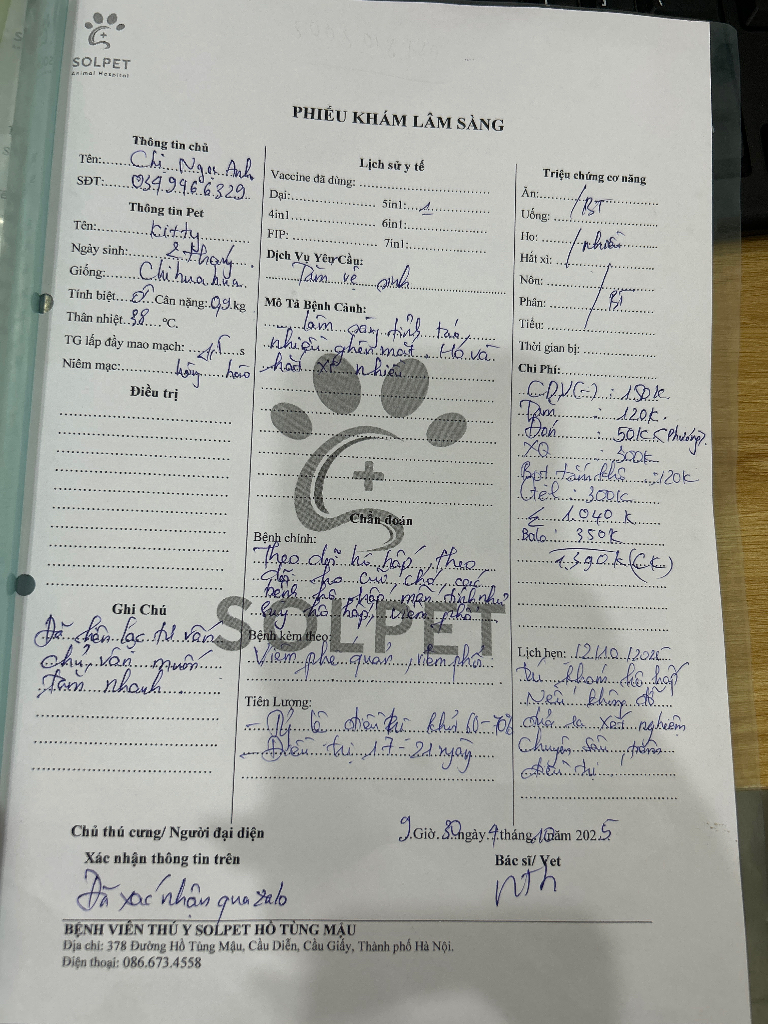 SOLPET
Animal Hospital
PHIẾU KHÁM LÂM SÀNG
Thông tin chủ
Tên: Chị Ngọc Anh
SĐT: 0349966329
Thông tin Pet
Tên: Kitty
Ngày sinh: 2 tháng
Giống: Chihuahua
Tính biệt ♂ Cân nặng: 0,9 kg
Thân nhiệt 38 °C.
TG lấp đầy mao mạch: s
Niêm mạc: hồng hào
Điều trị
Ghi Chú
Đã liên lạc tư vấn
chủ, vẫn muốn
tắm nhanh
Lịch sử y tế
Vaccine đã dùng:
Dại: 5in1: 1
4in1 6in1:
FIP: 7in1:
Dịch Vụ Yêu Cầu:
Tắm vệ sinh
Mô Tả Bệnh Cảnh:
lâm sàng tỉnh táo,
nhiều ghèn mắt. Ho và
hắt xì nhiều
Chẩn đoán
Bệnh chính:
Theo dõi hô hấp, theo
dõi ho cũi chó, các
bệnh hô hấp mãn tính như
suy hô hấp, viêm phổi
Bệnh kèm theo:
Viêm phế quản, viêm phổi
Tiên Lượng:
- Tỷ lệ điều trị khỏi 60-70%
- Điều trị 17-21 ngày
Triệu chứng cơ năng
Ăn:
Uống: BT
Ho: nhiều
Hắt xì:
Nôn:
Phân: BT
Tiểu:
Thời gian bị:
Chi Phí:
CDV(-) : 150K
Tắm : 120K
Đón : 50K (Phương)
XQ : 300K
Bọt tắm khô : 120K
Gel : 300K
Σ 1.040 K
Balo : 350K
1.390K (CK)
Lịch hẹn: 12/10/2025
Tái khám hô hấp
Nếu không đỡ
xét nghiệm
chuyên sâu,
điều trị
9 Giờ 30 ngày 4 tháng 10 năm 2025
Chủ thú cưng/ Người đại diện
Xác nhận thông tin trên
Đã xác nhận qua zalo
Bác sĩ/ Vet
nth
BỆNH VIỆN THÚ Y SOLPET HỒ TÙNG MẬU
Địa chỉ: 378 Đường Hồ Tùng Mậu, Cầu Diễn, Cầu Giấy, Thành phố Hà Nội.
Điện thoại: 086.673.4558
SOLPET